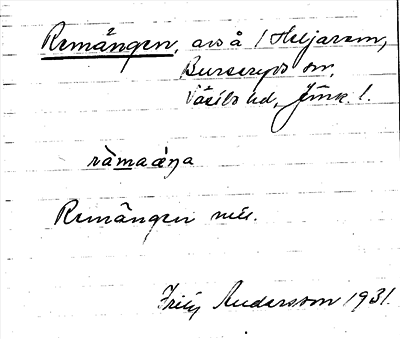 Remängen, avs å / Heljaram,
Burseryds sn,
Västbo hd, Jönk. l.
ràmaǽŋa
Remängen
Fritz Andersson 1931.